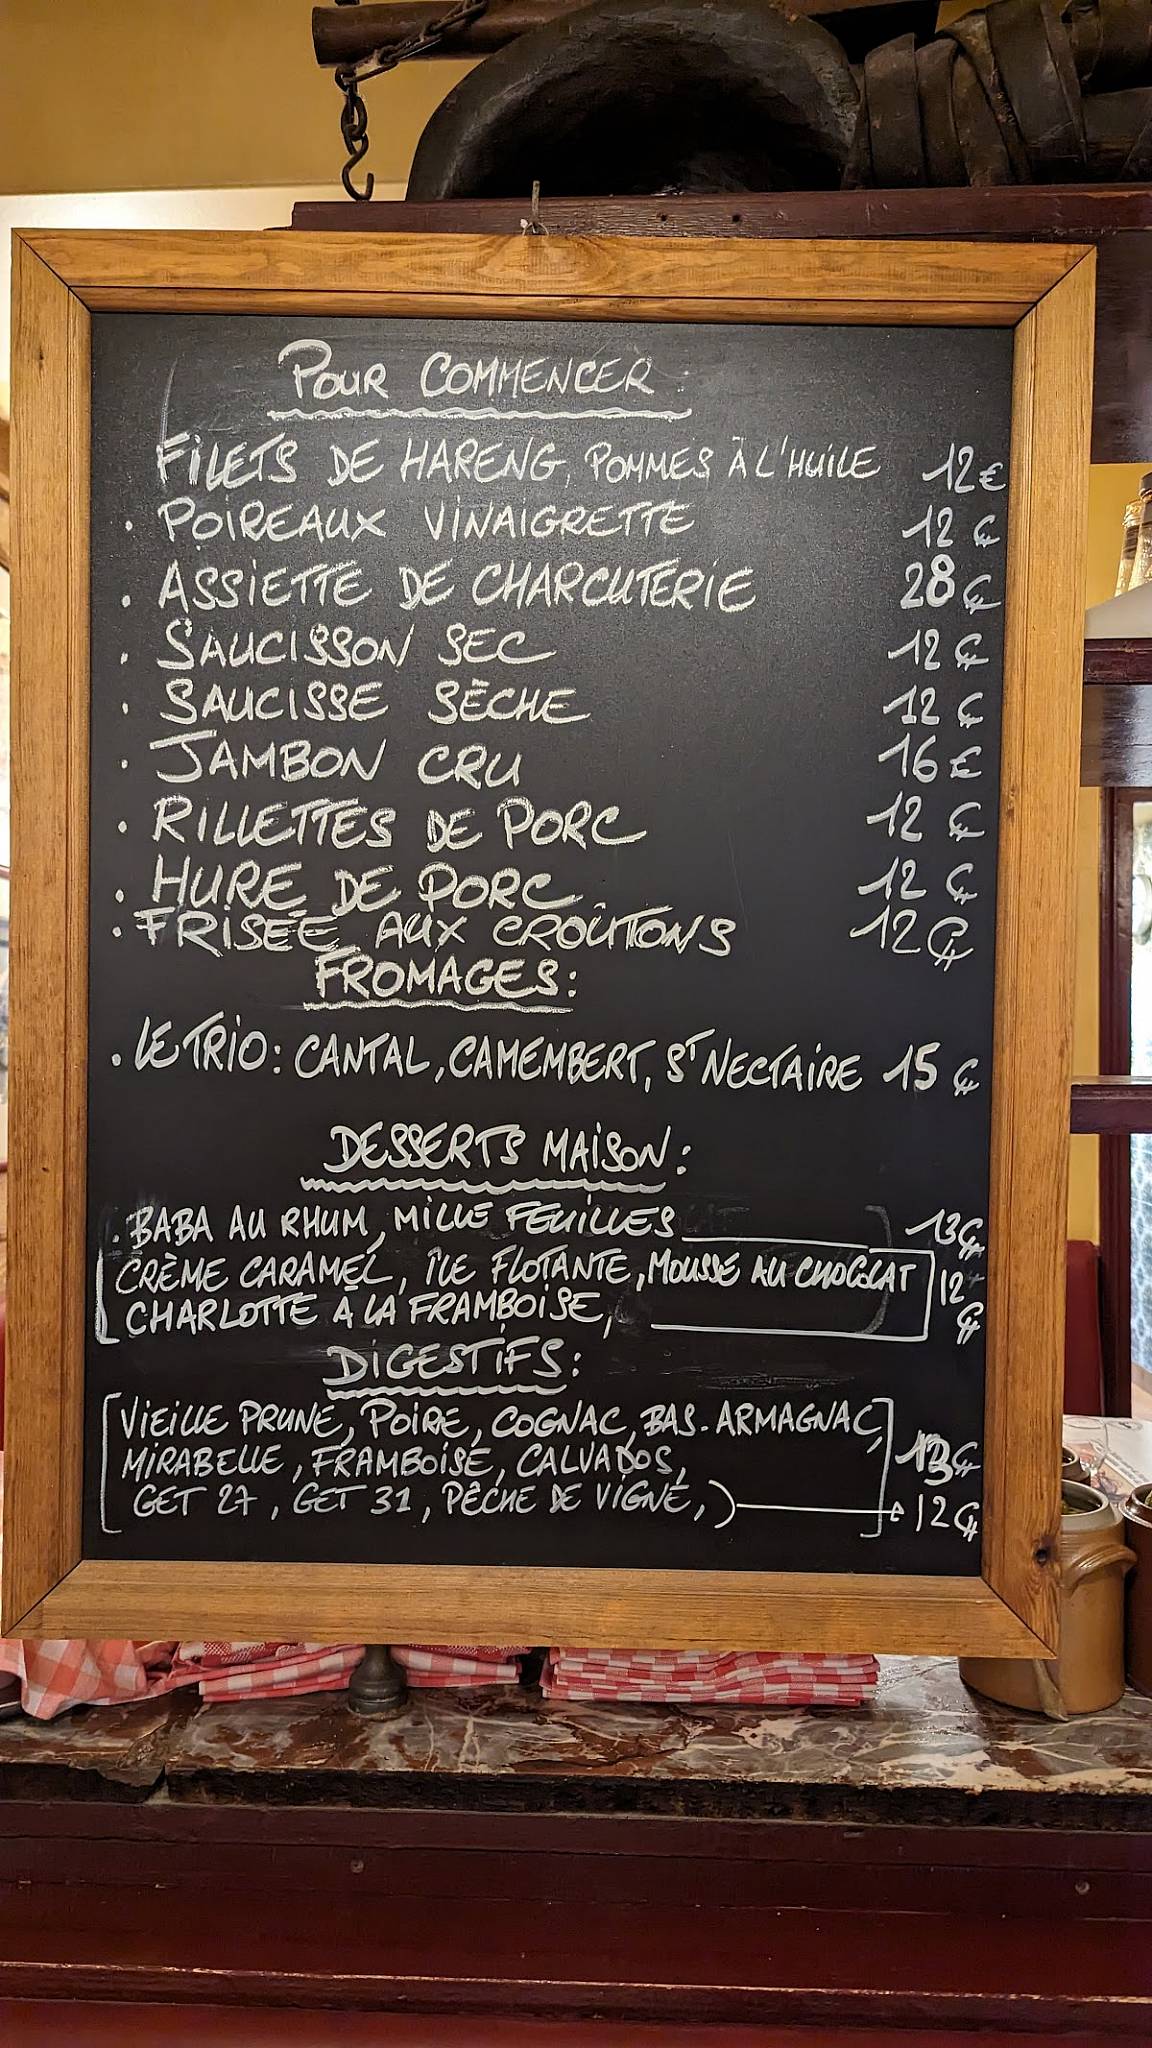 POUR COMMENCER :
FILETS DE HARENG, POMMES À L'HUILE 12 €
. POIREAUX VINAIGRETTE 12 €
. ASSIETTE DE CHARCUTERIE 28 €
. SAUCISSON SEC 12 €
. SAUCISSE SÈCHE 12 €
. JAMBON CRU 16 €
. RILLETTES DE PORC 12 €
. HURE DE PORC 12 €
. FRISÉE AUX CROÛTONS 12 €
FROMAGES :
. LE TRIO : CANTAL, CAMEMBERT, ST NECTAIRE 15 €
DESSERTS MAISON :
. BABA AU RHUM, MILLE FEUILLES 13 €
CRÈME CARAMEL, ÎLE FLOTANTE, MOUSSE AU CHOCOLAT 12 €
CHARLOTTE À LA FRAMBOISE,
DIGESTIFS :
VIEILLE PRUNE, POIRE, COGNAC, BAS-ARMAGNAC,
MIRABELLE, FRAMBOISE, CALVADOS, 13 €
GET 27, GET 31, PÊCHE DE VIGNE,) 12 €